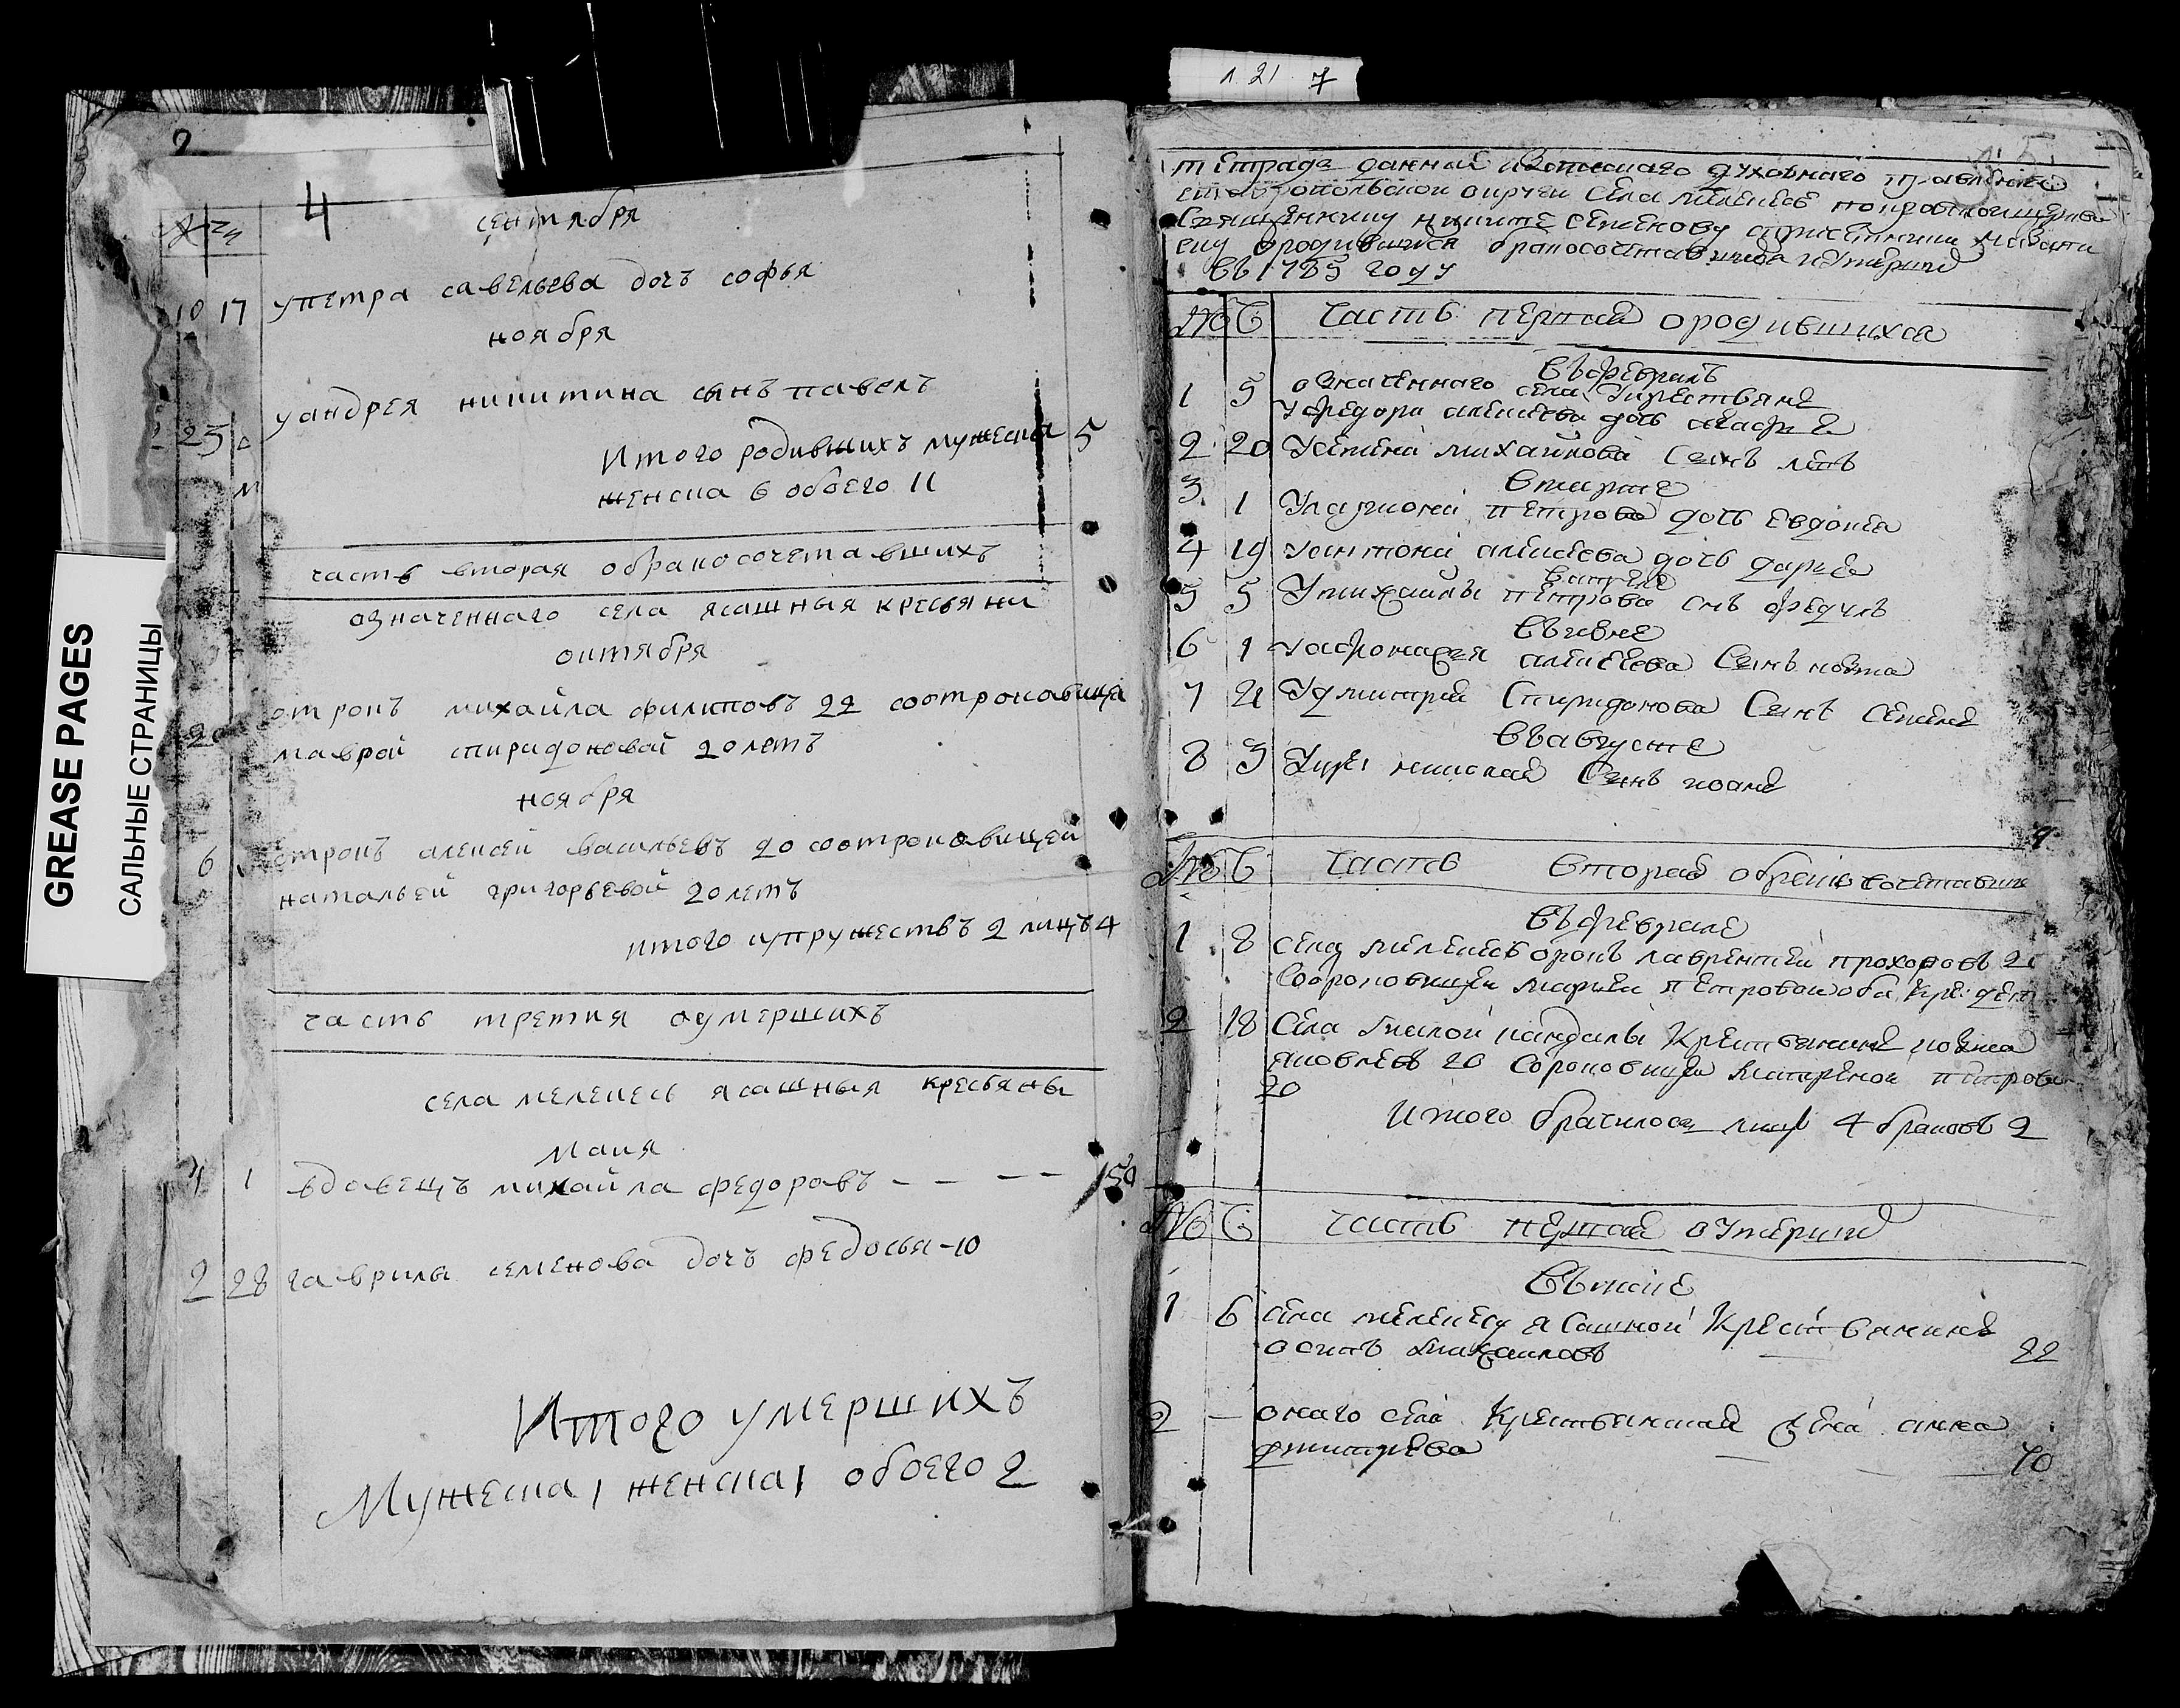 GREASE PAGES
САЛЬНЫЕ СТРАНИЦЫ
2
4
сентября
10 17 упетра савельева дочъ софья
ноября
25 уандрея никитина сынъ павелъ
Итого родившихъ мужеска 5
женска 6 обоего 11
часть вторая обракосочетавшихъ
означенного села ясашныя кресьяни
октября
отрокъ михайла филиповъ 22 соотроковица
маврой спиридоновой 20 летъ
ноября
6 отрокъ алексей васильевъ 20 соотроковицей
натальей григорьевой 20 летъ
итого супружествъ 2 лицъ 4
часть третия оумершихъ
села мелекесь ясашныя кресьяны
маия
1 1 вдовецъ михайла федоровъ - - - - 50
2 28 гаврилы семенова дочъ федосья - 10
Итого умершихъ
Мужеска 1 женска 1 обоего 2
л. 21 7
тетрадь данная духовного правления
ставропольской округи села мелекесь
священнику никите семенову
ородившихся бракосочетавшихся
въ 1785 году
№ Ч часть первая ородившихся
въ феврале
1 5 означенного села укрестьяне
уфедора алексеева дочь
2 20 усемена михайлова сынъ левъ
в марте
3 1 улариона петрова дочь евдокея
4 19 уантона алексеева дочь дарья
в апреле
5 5 умихайлы петрова снъ федулъ
въ июне
6 1 алексеева сынъ
7 21 удмитрея спиридонова сынъ семенъ
въ августе
8 3 николая сынъ иоанъ
№ Ч часть вторая обракъ сочетавши
въ феврале
1 8 села мелекесъ орокъ лаврентей прохоровъ 20
соороковицеи марьеи петровои оба кре дети
2 18 села малой кандалы крестьянинъ
яковлевъ 20 сороковицеи матреной петрово
20
Итого брачилося лицъ 4 браковъ 2
№ Ч часть оумерши
въ маие
1 6 села мелекесу ясашной крестьянинъ
осипъ михаиловъ 22
2 — онаго села крестьянская жена анна
дмитрева 70